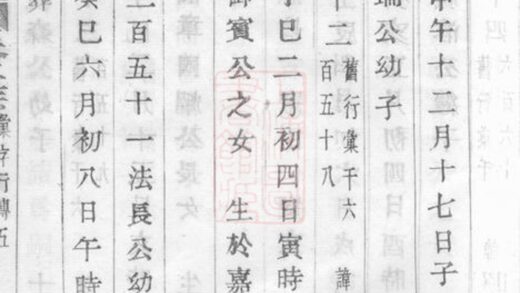 甲午十二月十七日子
瑞公幼子
十二 舊行彙千六百五十八 諱
丁巳二月初四日寅時
御賓公之女 生於嘉
二百五十一法長公幼
癸巳六月初八日午時